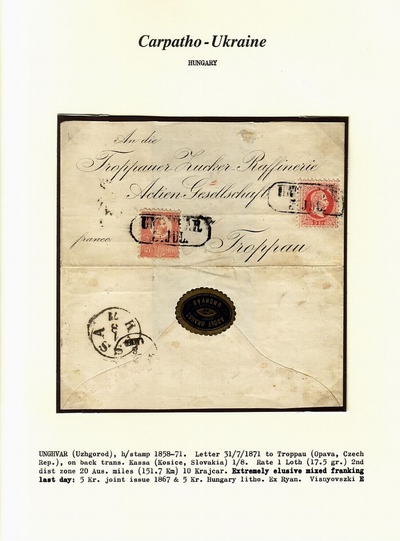 Carpatho-Ukraine
HUNGARY
An die
Troppauer Zucker-Raffinerie
Actien Gesellschaft
franco
Troppau
UNGHVAR
JUL.
UNGHVAR (Uzhgorod), h/stamp 1858-71. Letter 31/7/1871 to Troppau (Opava, Czech
Rep.), on back trans. Kassa (Kosice, Slovakia) 1/8. Rate 1 Loth (17.5 gr.) 2nd
dist zone 20 Aus. miles (151.7 Km) 10 Krajcar. Extremely elusive mixed franking
last day: 5 Kr. joint issue 1867 & 5 Kr. Hungary litho. Ex Ryan. Visnyovszki E